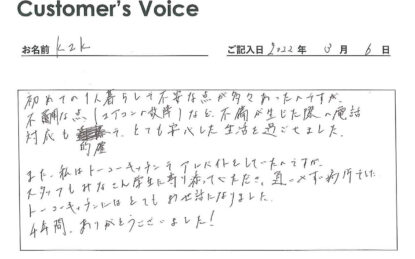 Customer's Voice
お名前 K2K ご記入日 2022 年 3 月 6 日
初めての1人暮らしで不安な点が多々あったんですが、
不調な点(エアコンの故障)など、不備が生じた際の電話
対応も的確で、とても安心した生活を過ごせました。
また、私はトーコーキッチンでアルバイトをしていたんですが、
スタッフもみなさん学生に寄り添ってくださり、通いやすい場所でした。
トーコーキッチンにはとてもお世話になりました。
4年間、ありがとうございました!